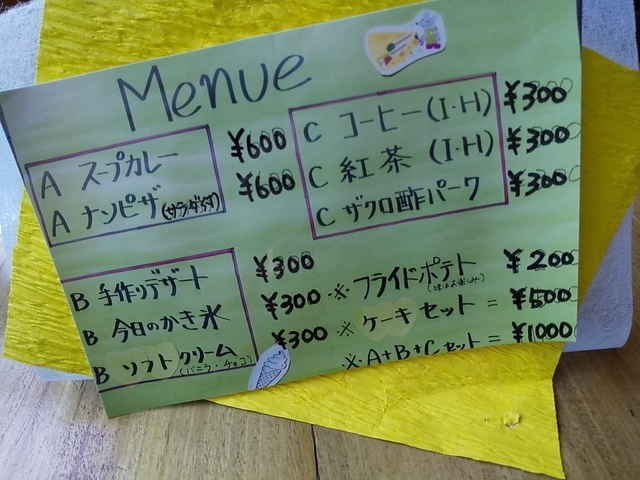 Menue
A スープカレー ¥600
A ナンピザ(サラダつき) ¥600
B 手作りデザート ¥300
B 今日のかき氷 ¥300
B ソフトクリーム(バニラ・チョコ) ¥300
C コーヒー(I・H) ¥300
C 紅茶(I・H) ¥300
C ザクロ酢パーク ¥300
※フライドポテト ¥200
※ケーキセット = ¥500
※A+B+Cセット = ¥1000